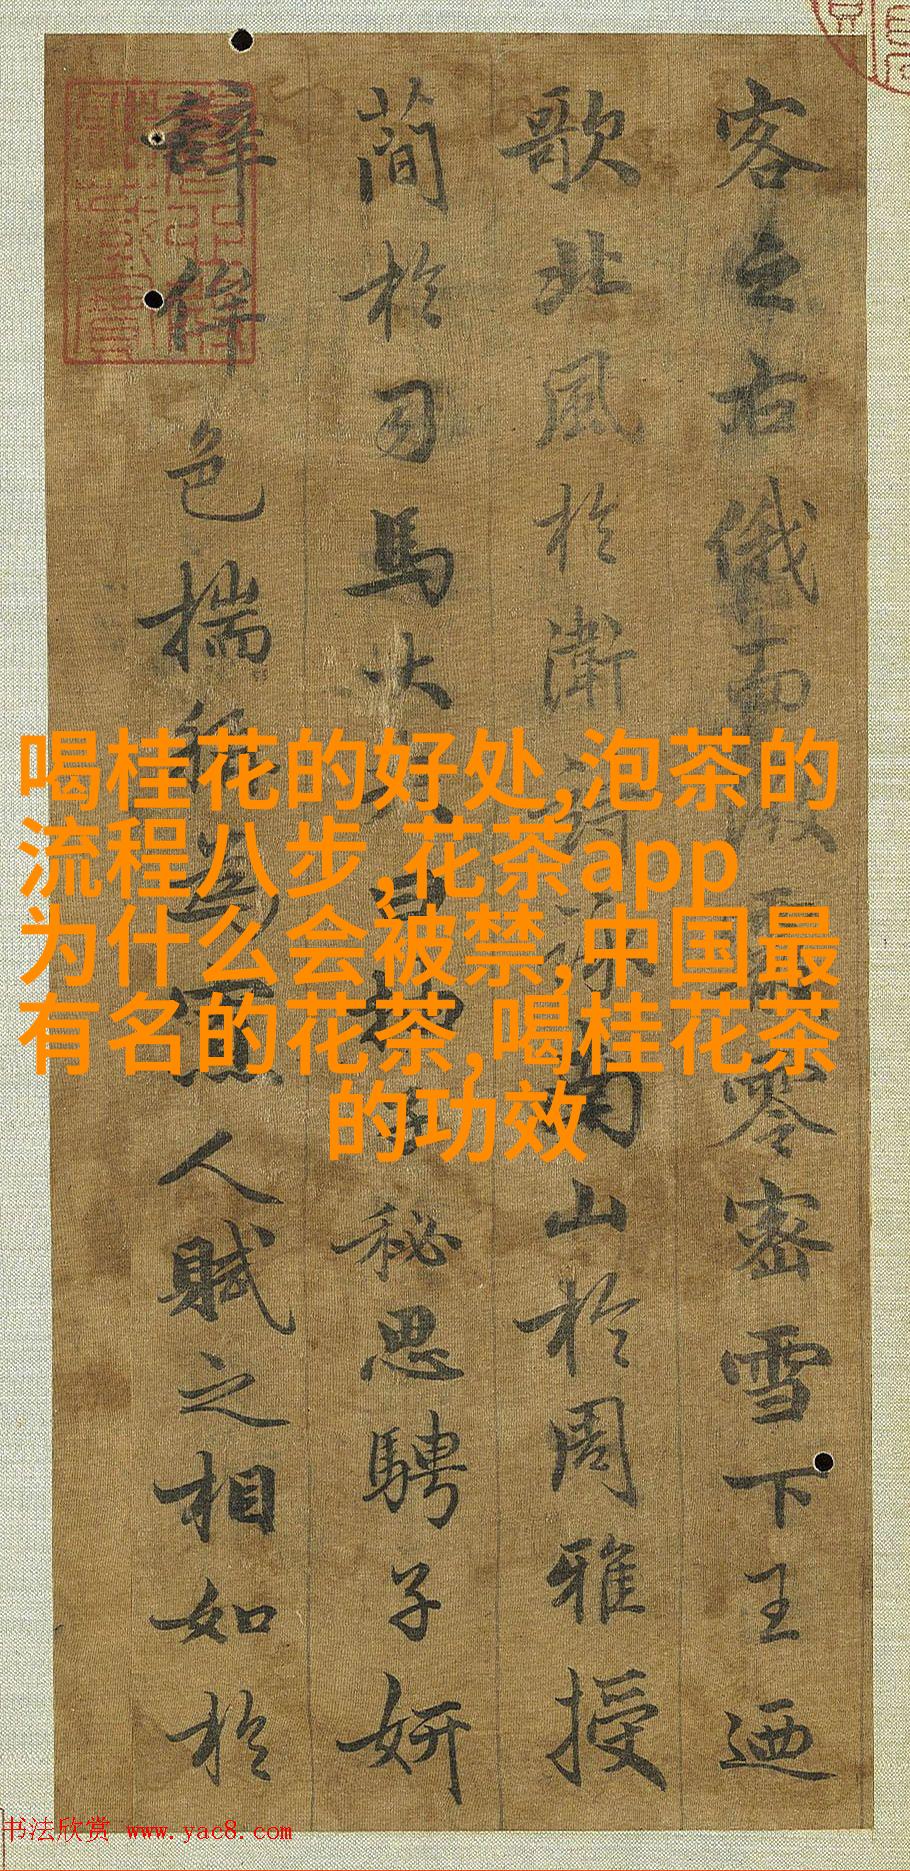 客之右俄而微霰零密雪下王迺
歌北風於衛詩詠南山於周雅授
簡於司馬大夫曰抽子秘思騁子妍
辭侔色揣稱為寡人賦之相如於
喝桂花的好处,泡茶的
流程八步,花茶app
为什么会被禁,中国最
有名的花茶,喝桂花茶
的功效
书法欣赏 www.yac8.com